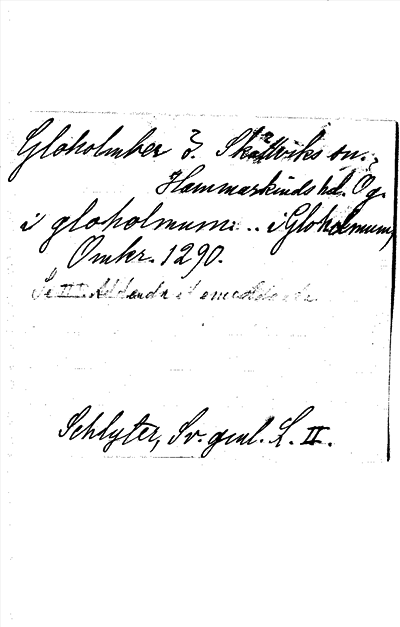 Gloholmber ? Skällviks sn.,
Hammarkinds hd. Ög.
i gloholmum: .. i Gloholmum,
Omkr. 1290.
Se III. Addenda et emendanda.
Schlyter, Sv. gml. L. II.